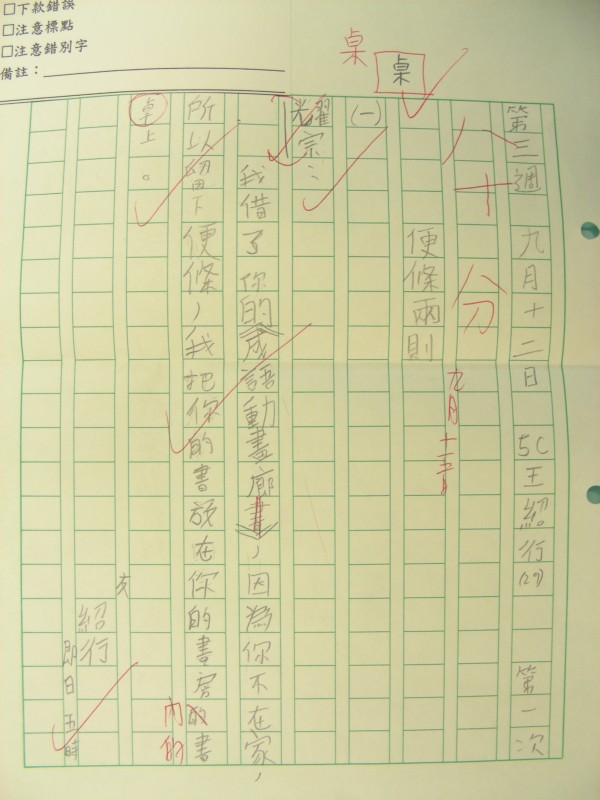 □下款錯誤
□注意標點
□注意錯別字
備註：
桌
桌
第三週 九月十二日 5C王紹行(29) 第一次
八十分
九月十三日
便條兩則
(一)
光耀宗：
我借了你的《成語動畫廊》，因為你不在家，
所以留下便條，我把你的書放在你的書房的書
內的
卓上。
友
紹行
即日五時